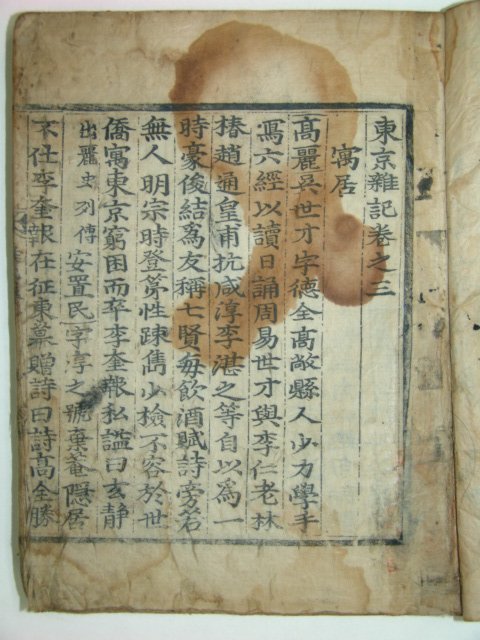 東京雜記卷之三
寓居
高麗吳世才字德全高敞縣人少力學手
寫六經以讀日誦周易世才與李仁老林
椿趙通皇甫抗咸淳李湛之等自以爲一
時豪俊結爲友稱七賢每飮酒賦詩旁若
無人明宗時登第性踈雋少檢不容於世
僑寓東京窮困而卒李奎報私謚曰玄静
出麗史列傳 安置民字享之號棄菴隱居
不仕李奎報在征東幕贈詩曰詩高全勝